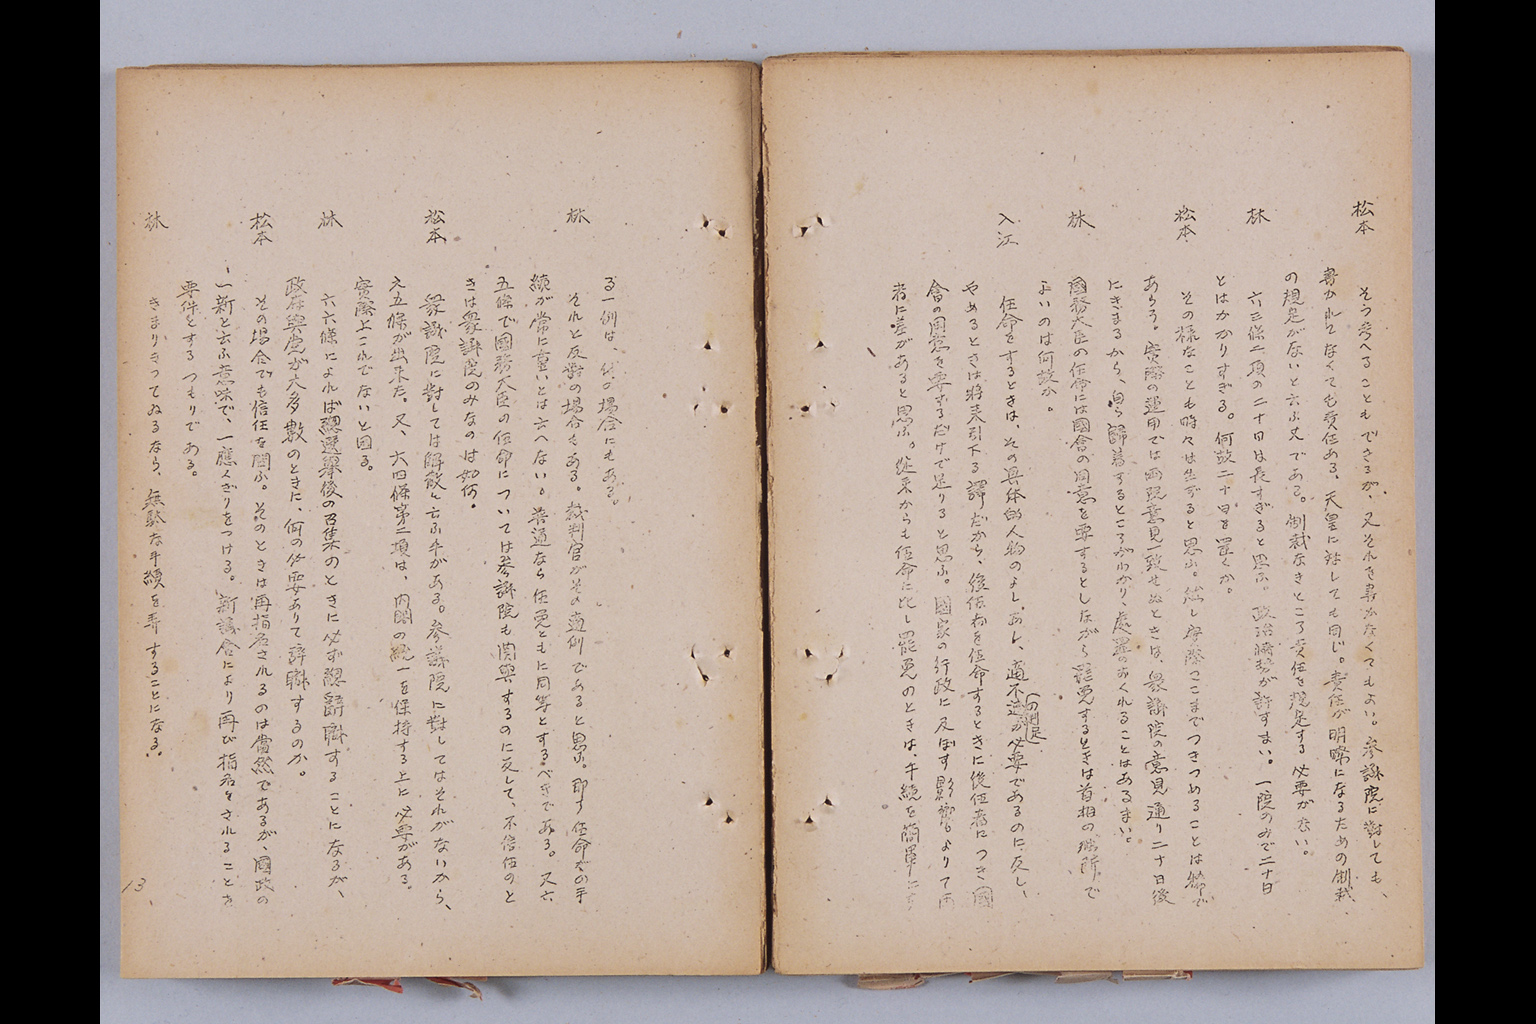 松本　そう考へることもできるが、又それを書かなくてもよい。参議院に對しても、
書かれてなくても責任ある、天皇に対しても同じ。責任が明瞭になるための制裁
の規定がないと云ふ丈である。制裁なきところ責任を規定する必要がない。
林　六三條二項の二十日は長すぎると思ふ。政治情勢が許すまい。一院のみで二十日
とはかかりすぎる。何故二十日を置くか。
松本　その様なことも時々は生ずると思ふ。然し実際ここまでつきつめることは
あらう。實際の運用では両院意見一致せぬときは、衆議院の意見通り二十日後
にきまるから、自ら歸着するところがわかり、處置のおくれることはあるまい。
林　國務大臣の任命には國会の同意を要するとしながら罷免するときは首相の で
よいのは何故か。
入江　任命をするときは、その具体的人物のよしあし、適不適(の判定)が必要であるのに反し、
やめるときは將来引下る譯だから、後任者を任命するときに後任者につき國
會の同意を要するだけで足りると思ふ。國家の行政に及ぼす影響もよりて両
者に差があると思ふ。從来からも任命に比し罷免のときは、手續を簡單にす
る一例は、他の場合にもある。
林　それと反對の場合もある。裁判官がその適例であると思ふ。即ち任命だの手
續が常に重いとは云へない。普通なら任免ともに同等とするべきである。又六
五條で國務大臣の任命については参議院も関與するのに反して、不信任のと
きは衆議院のみなのは如何。
松本　衆議院に對しては解散と云ふ手がある。参議院に對してはそれがないから、
え五條が出来た。又、六四條第二項は、内閣の統一を保持する上に必要がある。
實際上これでないと困る。
林　六六條によれば總選擧後の召集のときに必ず總辭職することになるが、
政府與党が大多數のときに、何の必要ありて辞職するのか。
松本　その場合でも信任を問ふ。そのときは再指名されるのは當然であるが、國政の
一新と云ふ意味で、一應くぎりをつける。新議会により再び指名をされることを
要件とするつもりである。
林　きまりきってゐるなら、無駄な手續を弄することになる。
13